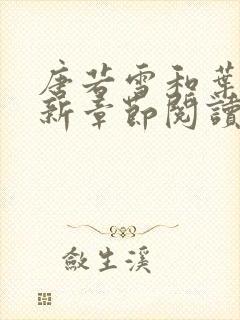 唐若雪和葉
新章節閱讀
斂生溪